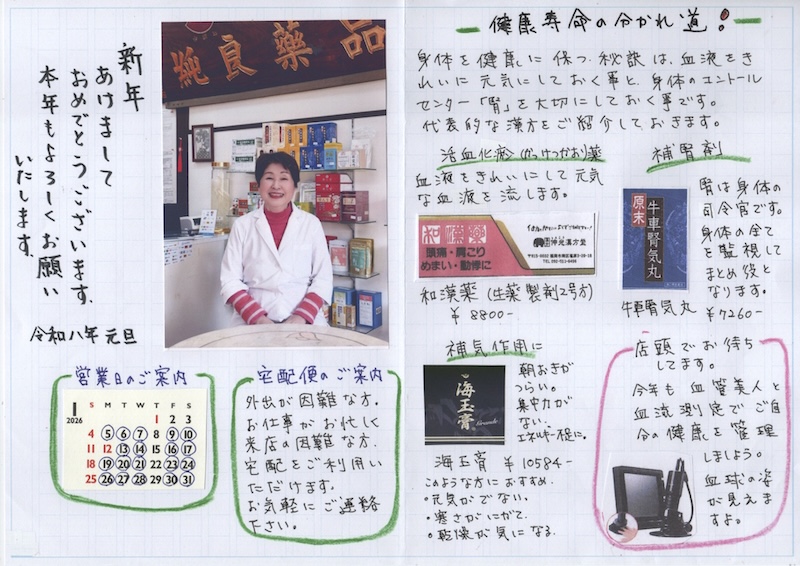 新年
あけまして
おめでとうございます。
本年もよろしくお願い
いたします。
令和八年 元旦
純良薬品
営業日のご案内
1
2026
S M T W T F S
1 2 3
4 5 6 7 8 9 10
11 12 13 14 15 16 17
18 19 20 21 22 23 24
25 26 27 28 29 30 31
宅配便のご案内
外出が困難な方。
お仕事がお忙しく
来店の困難な方、
宅配をご利用い
ただけます。
お気軽にご連絡
下さい。
健康寿命の分かれ道!
身体を健康に保つ秘訣は、血液をき
れいに元気にしておく事と、身体のコントロール
センター「腎」を大切にしておく事です。
代表的な漢方をご紹介しておきます。
活血化瘀(かっけつかお)薬
血液をきれいにして元気
な血液を流します。
和漢薬
頭痛・肩こり
めまい・動悸に
和漢薬(生薬製剤2号方)
¥8800-
補腎剤
原末
牛車腎気丸
腎は身体の
司令官です。
身体の全て
を監視して
まとめ役と
なります。
牛車腎気丸 ¥7260-
補気作用に
海玉膏
朝おきが
つらい。
集中力が
ない、
エネルギー不足に。
海玉膏 ¥10584-
このような方におすすめ。
・元気がでない、
・寒さがにがて、
・乾燥が気になる。
店頭でお待ち
してます。
今年も血管美人と
血流測定でご自
分の健康を管理
しましよう。
血球の姿
が見えま
すよ。